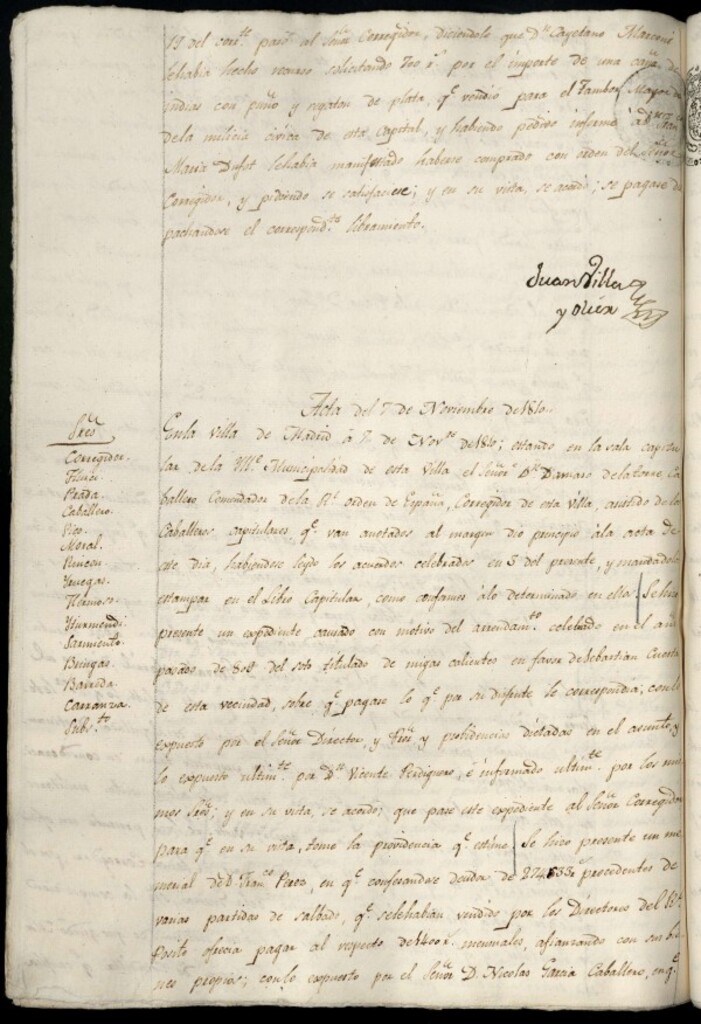 19 del corr.te paso al Señor Corregidor, diciendole que D.n Cayetano Marconi
sehabia hecho recurso solicitando 700 r.s por el importe de una caña de
indias con puño y regaton de plata, q.e vendió para el Tambor Mayor
dela milicia civica de esta Capital, y habiendo pedido informe á D.n Fran.co
Maria Dufot sehabia manifestado haberse comprado con orden del Señor
Corregidor, y pidiendo se satisfaciese; y en su vista, se acordó; se pagase des
pachandose el correspond.te libramiento.
Juan Villa
y Olier
Acta del 7 de Noviembre de 1810.
Sres
Corregidor.
Prada.
Caballero.
Pico.
Moral.
Rincon.
Yruegas.
Hermoso.
Yturmendi.
Sarmiento.
Bringas.
Barreda.
Carranza.
Subs.to
Enla Villa de Madrid á 7 de Nov.re de 1810; estando en la sala capitu
lar dela Ill.e Municipalidad de esta Villa el Señor D.n Damaso delatorre, Ca
ballero Comendador dela R.l orden de España, Corregidor de esta villa, asistido delos
Caballeros capitulares q.e van anotados al margen dio principio ála acta de
este dia, habiendose leydo los acuerdos celebrados en 3 del presente, y mandadolos
estampar en el Libro Capitular, como conformes álo determinado en ellos. Sehizo
presente un expediente causado con motivo del arrendam.to celebrado en el año
pasado de 808 del soto titulado de migas calientes en favor deSebastian Cuesta
de esta vecindad, sobre q.e pagase lo q.e por su disfrute le correspondia; conlo
expuesto por el Señor Director, y providencias dictadas en el asunto, y
lo expuesto ultim.te por D.n Vicente Perdiguero, é informado ultim.te por los mis
mos Sres; y en su vista, se acordó; que pase este expediente al Señor Corregidor
para q.e en su vista, tome la providencia q.e estime. Se hizo presente un me
morial de D. Fran.co Perez, en q.e confesandose deudor de 274,533 r.s procedentes de
varias partidas de salbado, q.e selehabian vendido por los Directores del Po
sito ofrecia pagar al respecto de 1400 r.s mensuales, afianzando con sus bie
nes propios; conlo expuesto por el Señor D. Nicolas Garcia Caballero, en q.e